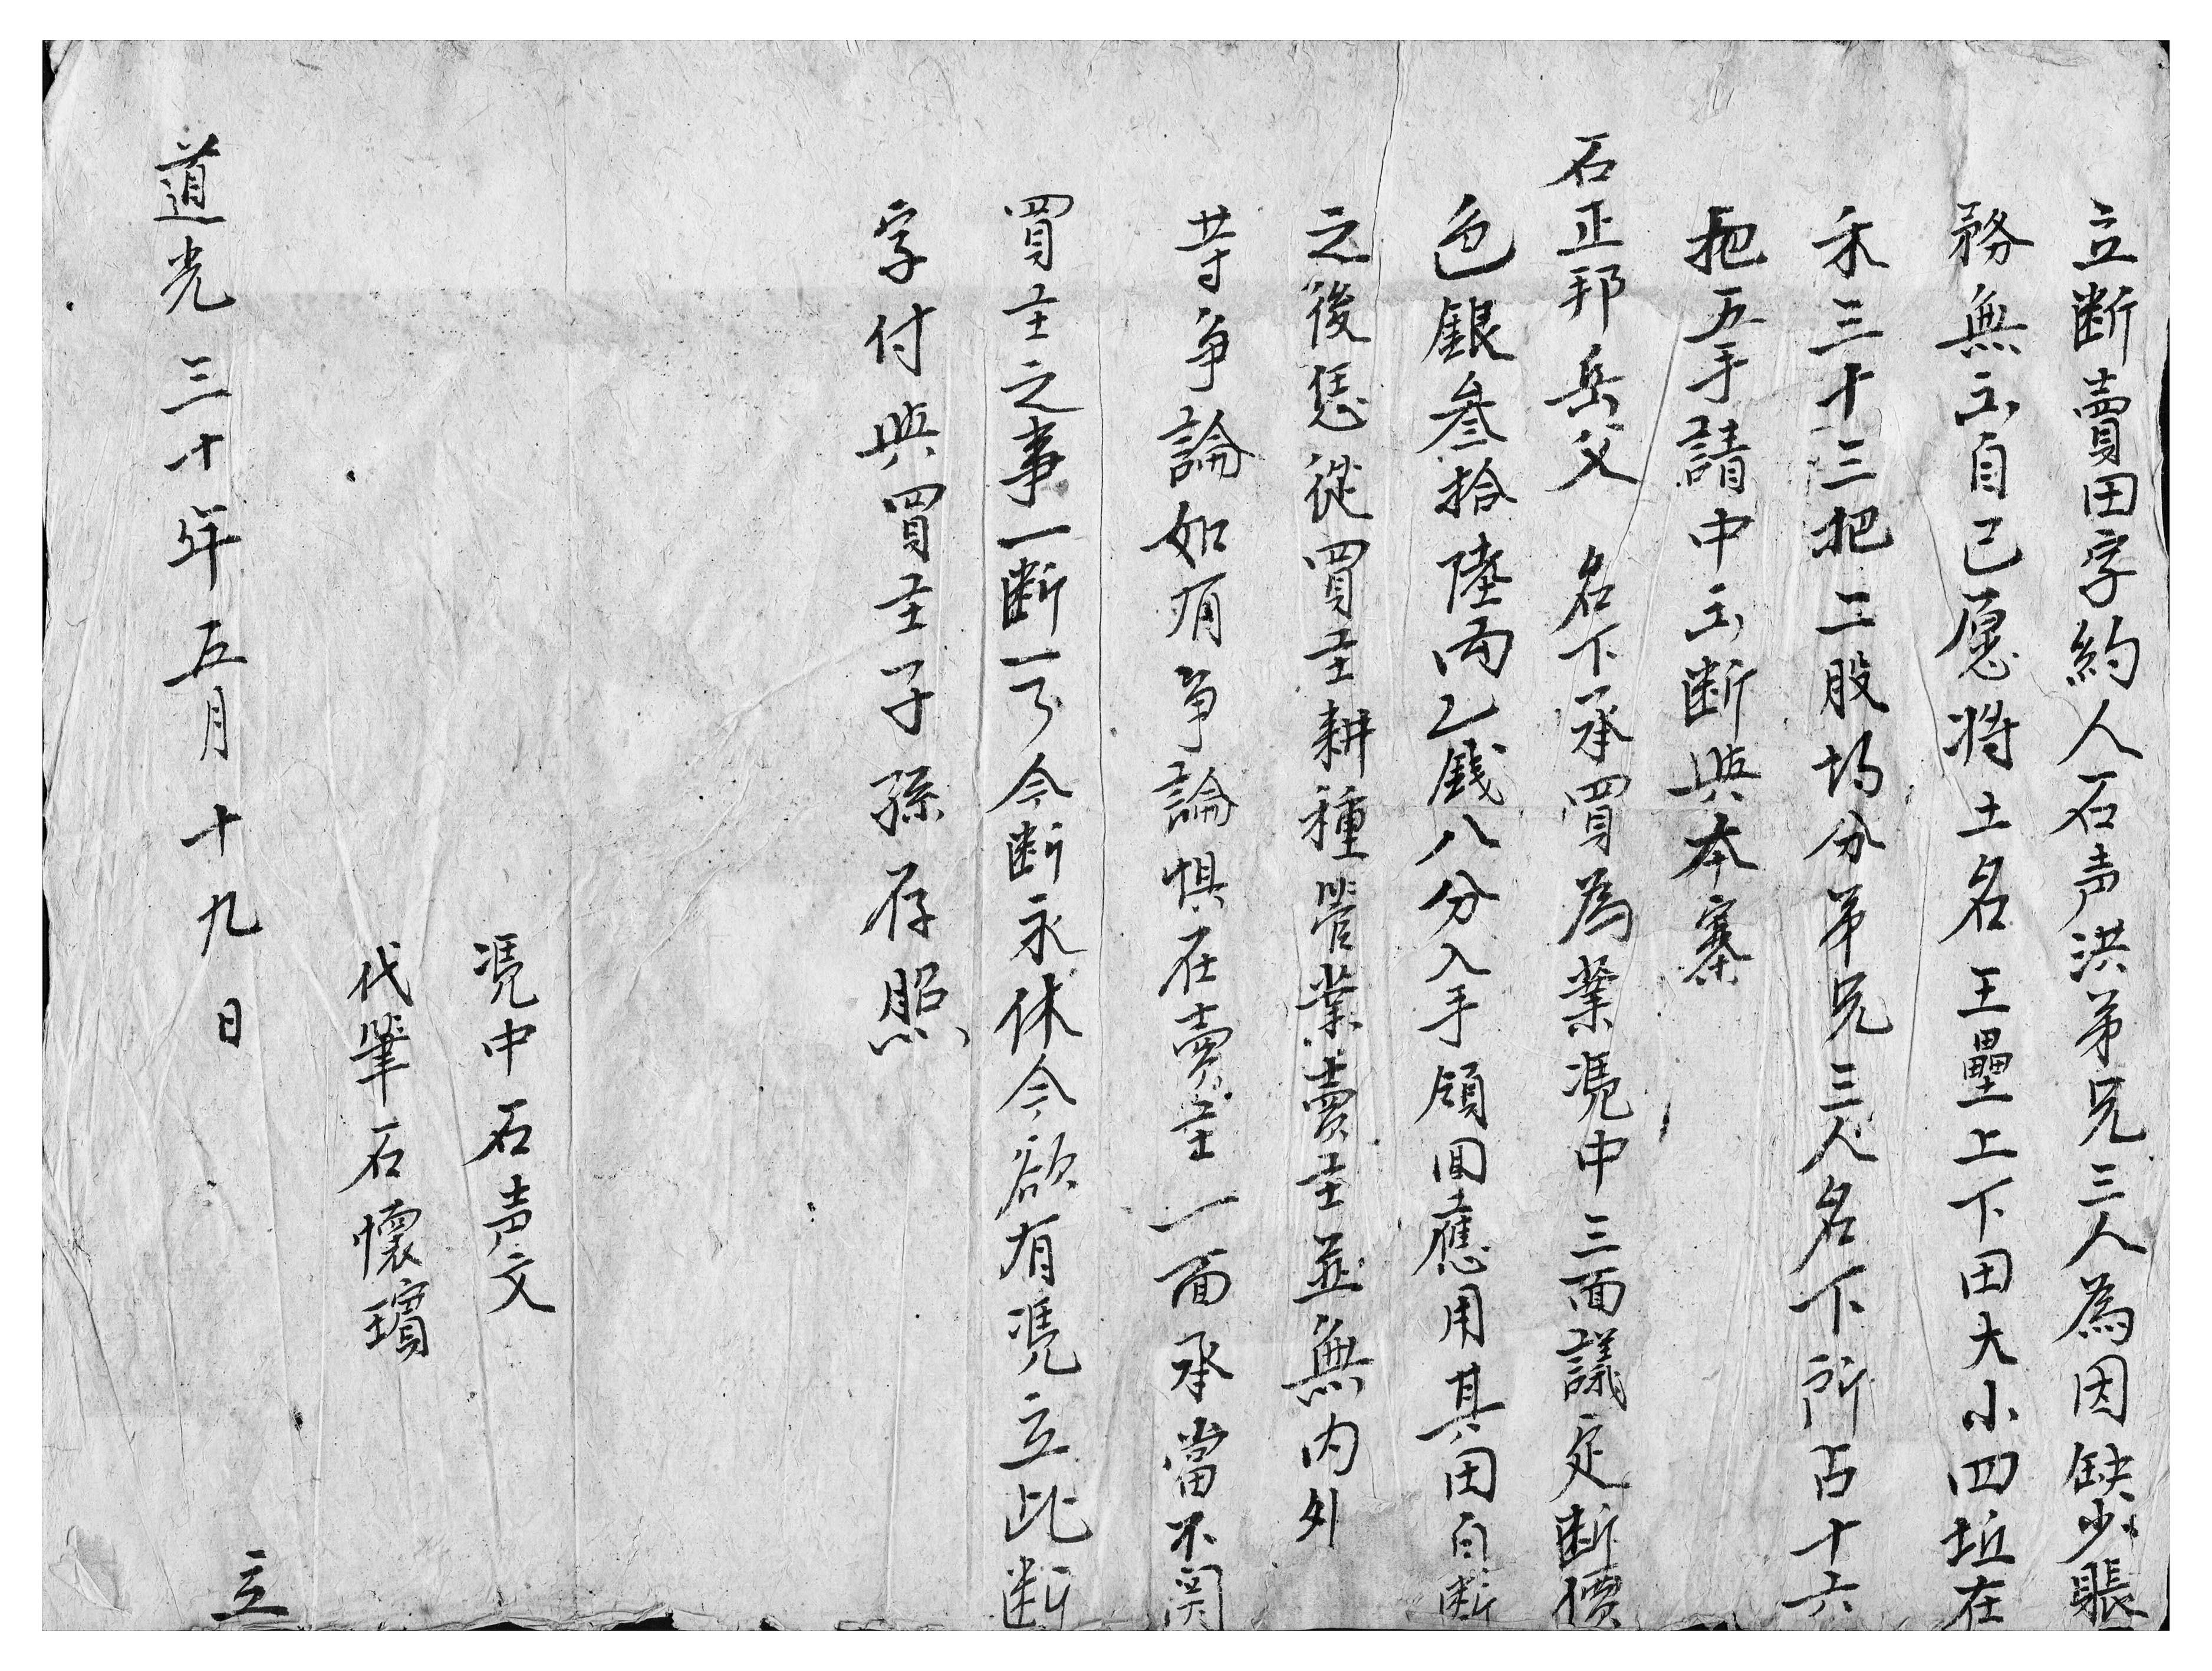 立断賣田字約人石声洪弟兄三人為因缺少賬
務無出自己愿將土名王壘上下田大小四坵在
禾三十三把二股均分弟兄三人名下所占十六
把五手請中出断與本寨
石正邦岳父 名下承買為業憑中三面議定断價
色銀叁拾陸両乙錢八分入手領回應用其田自断
之後恁從買主耕種管業賣主並無内外
等争論如有争論惧在賣主一面承當不関
買主之事一断一了今断永休今欲有憑立此断
字付與買主子孫存照
憑中石声文
代筆石懷璸
道光三十年五月十九日 立